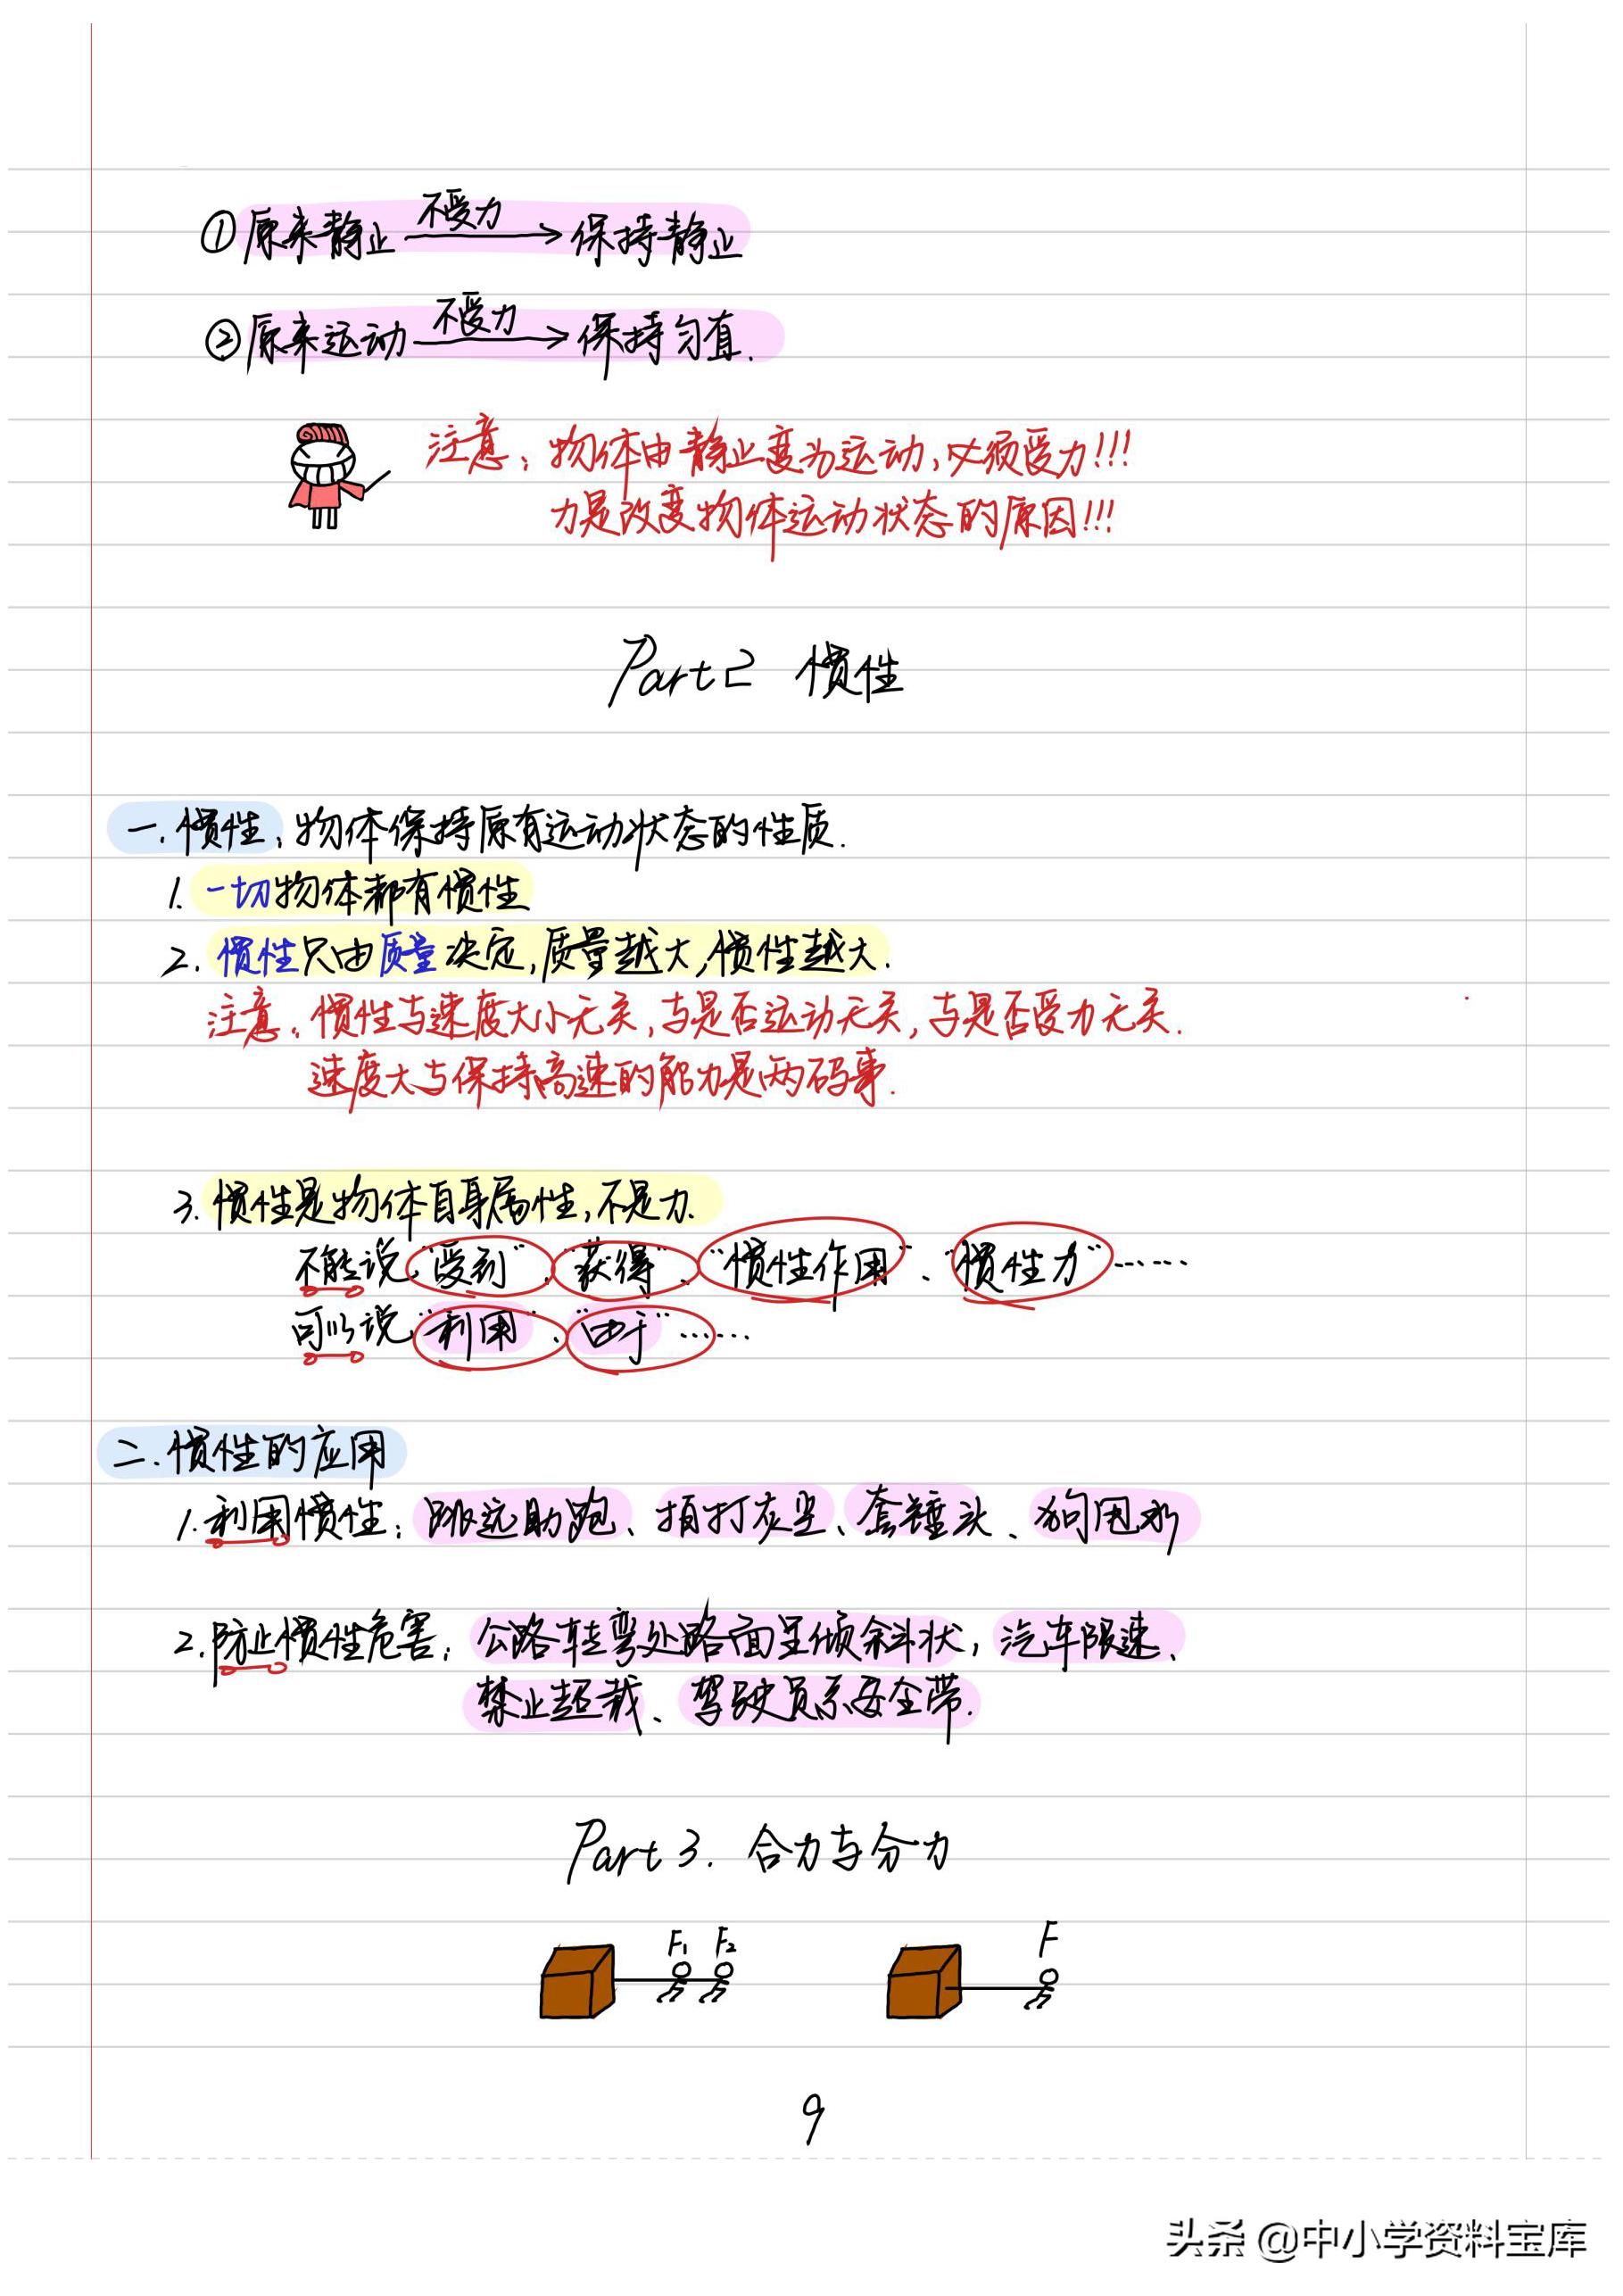 ①原来静止 不受力 保持静止
②原来运动 不受力 保持匀直.
注意:物体由静止变为运动,必须受力!!!
力是改变物体运动状态的原因!!!
Part 2 惯性
一.惯性:物体保持原有运动状态的性质.
1.一切物体都有惯性
2.惯性只由质量决定,质量越大,惯性越大.
注意:惯性与速度大小无关,与是否运动无关,与是否受力无关.
速度大与保持高速的能力是两码事.
3.惯性是物体自身属性,不是力.
不能说“受到”、“获得”、“惯性作用”、“惯性力”……
可以说“利用”、“由于”……
二.惯性的应用
1.利用惯性:跳远助跑、拍打灰尘、套锤头、狗甩水
2.防止惯性危害:公路转弯处路面呈倾斜状,汽车限速、
禁止超载、驾驶员系安全带.
Part 3. 合力与分力
F1 F2 F
9
头条 @中小学资料宝库